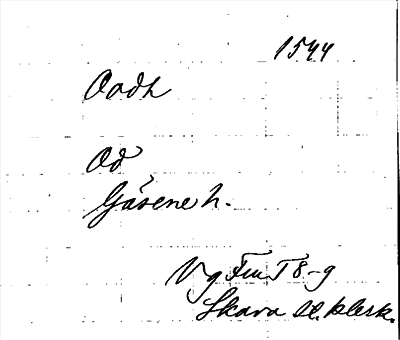 1544
Oodh
Od
Gäsene h.
Vg Fru T 8-9
Skara st. klerk.